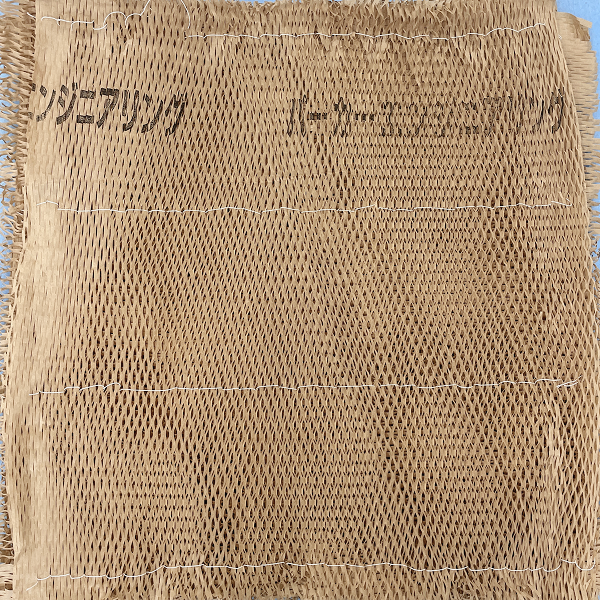 ンジニアリング パーカーエンジニアリング